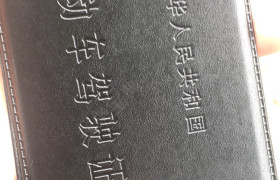 华人民共和国
动车驾驶证